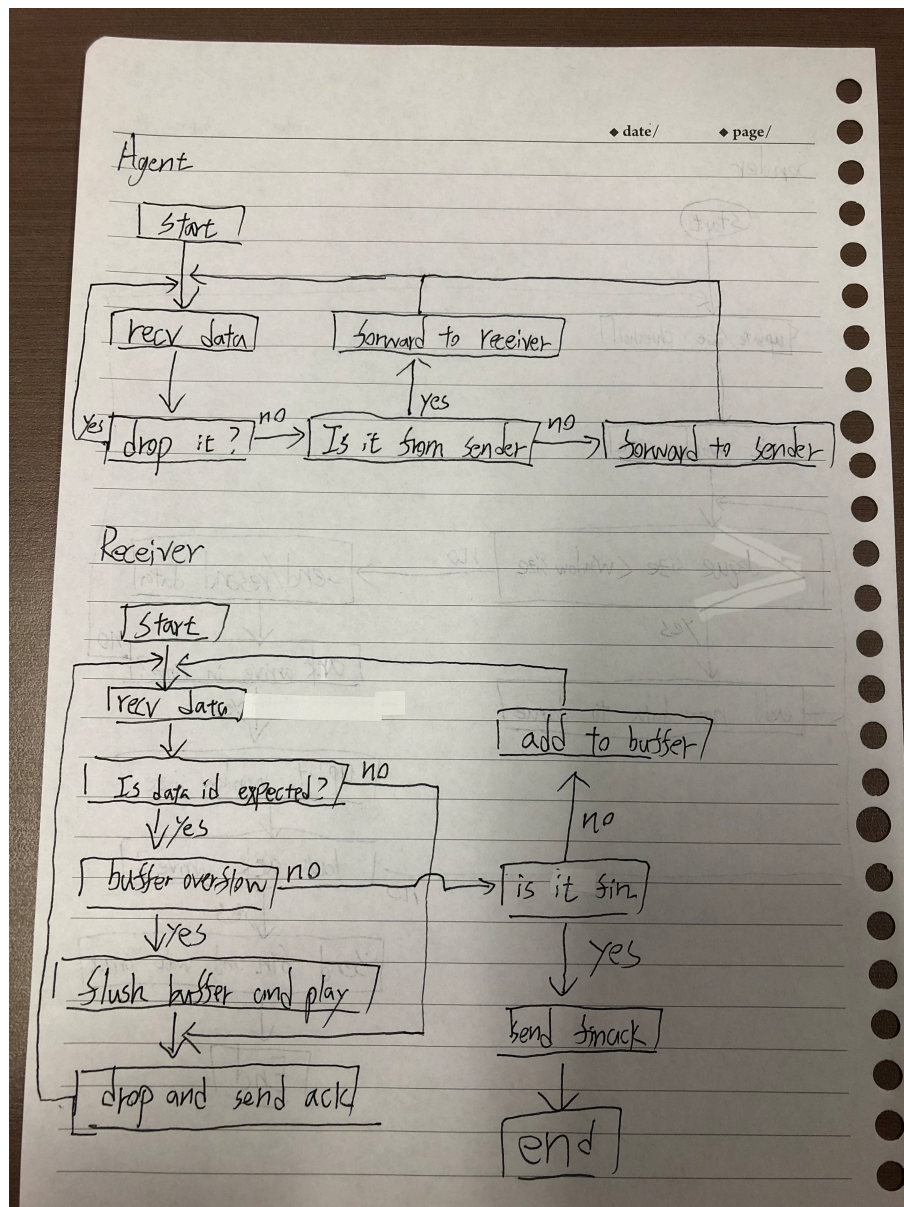 ◆ date/ ◆ page/
Agent
start
recv data
forward to receiver
yes
yes
drop it?
no
Is it from sender
no
forward to sender
Receiver
start
recv data
add to buffer
Is data id expected?
no
no
yes
buffer overflow
no
is it fin
yes
yes
flush buffer and play
send finack
drop and send ack
end